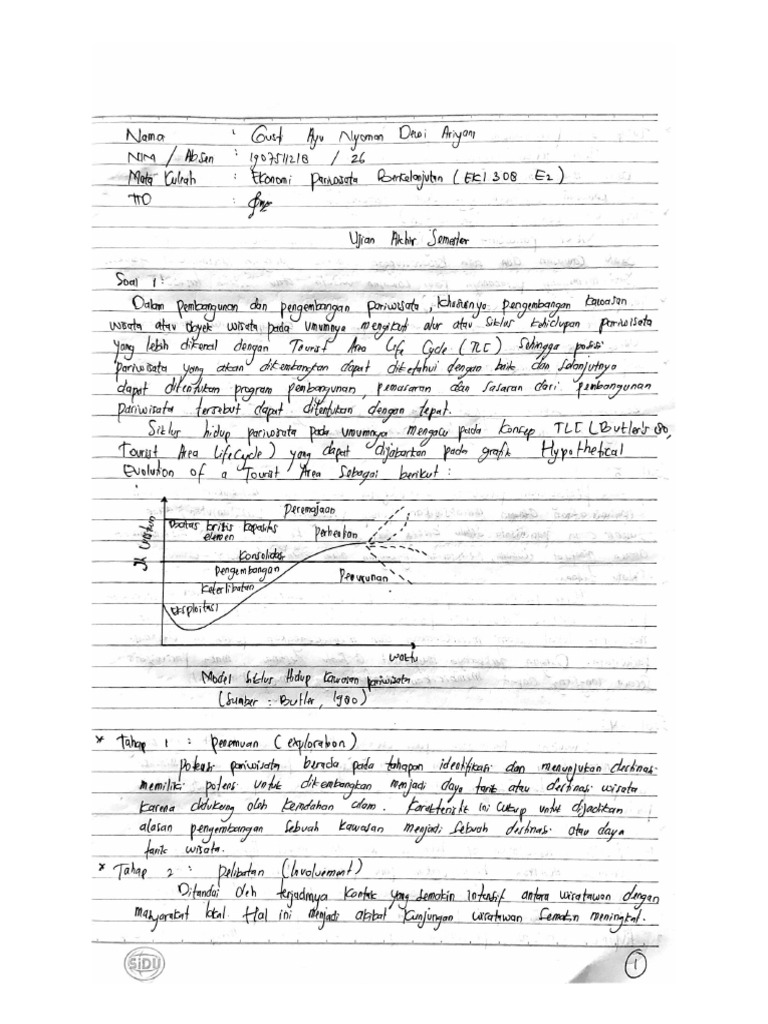 Nama : Gusti Ayu Nyoman Dewi Ariyani
NIM / Absen : 1907511218 / 26
Mata Kuliah : Ekonomi Pariwisata Berkelanjutan (EKI 308 E2)
TTD :
Ujian Akhir Semester
Soal 1 :
Dalam pembangunan dan pengembangan pariwisata, khususnya pengembangan kawasan
wisata atau obyek wisata pada umumnya mengikuti alur atau siklus kehidupan pariwisata
yang lebih dikenal dengan Tourist Area Life Cycle (TLC) sehingga posisi
pariwisata yang akan dikembangkan dapat diketahui dengan baik dan selanjutnya
dapat ditentukan program pembangunan, pemasaran dan sasaran dari pembangunan
pariwisata tersebut dapat ditentukan dengan tepat.
Siklus hidup pariwisata pada umumnya mengacu pada konsep TLC (Butler's 80,
Tourist Area LifeCycle) yang dapat dijabarkan pada grafik Hypothetical
Evolution of a Tourist Area sebagai berikut :
Peremajaan
batas kritis kapasitas
elemen
Perhentian
Konsolidasi
Pengembangan
Keterlibatan
Penurunan
Eksploitasi
Jlh Wisatawan
waktu
Model Siklus Hidup Kawasan pariwisata
(Sumber : Butler, 1980)
* Tahap 1 : Penemuan (exploration)
Potensi pariwisata berada pada tahapan identifikasi dan menunjukan destinasi
memiliki potensi untuk dikembangkan menjadi daya tarik atau destinasi wisata
karena didukung oleh keindahan alam. Karakteristik ini cukup untuk dijadikan
alasan pengembangan sebuah kawasan menjadi sebuah destinasi atau daya
tarik wisata.
* Tahap 2 : Pelibatan (Involvement)
Ditandai oleh terjadinya kontak yang semakin intensif antara wisatawan dengan
masyarakat lokal. Hal ini menjadi akibat kunjungan wisatawan semakin meningkat.
SiDU
1